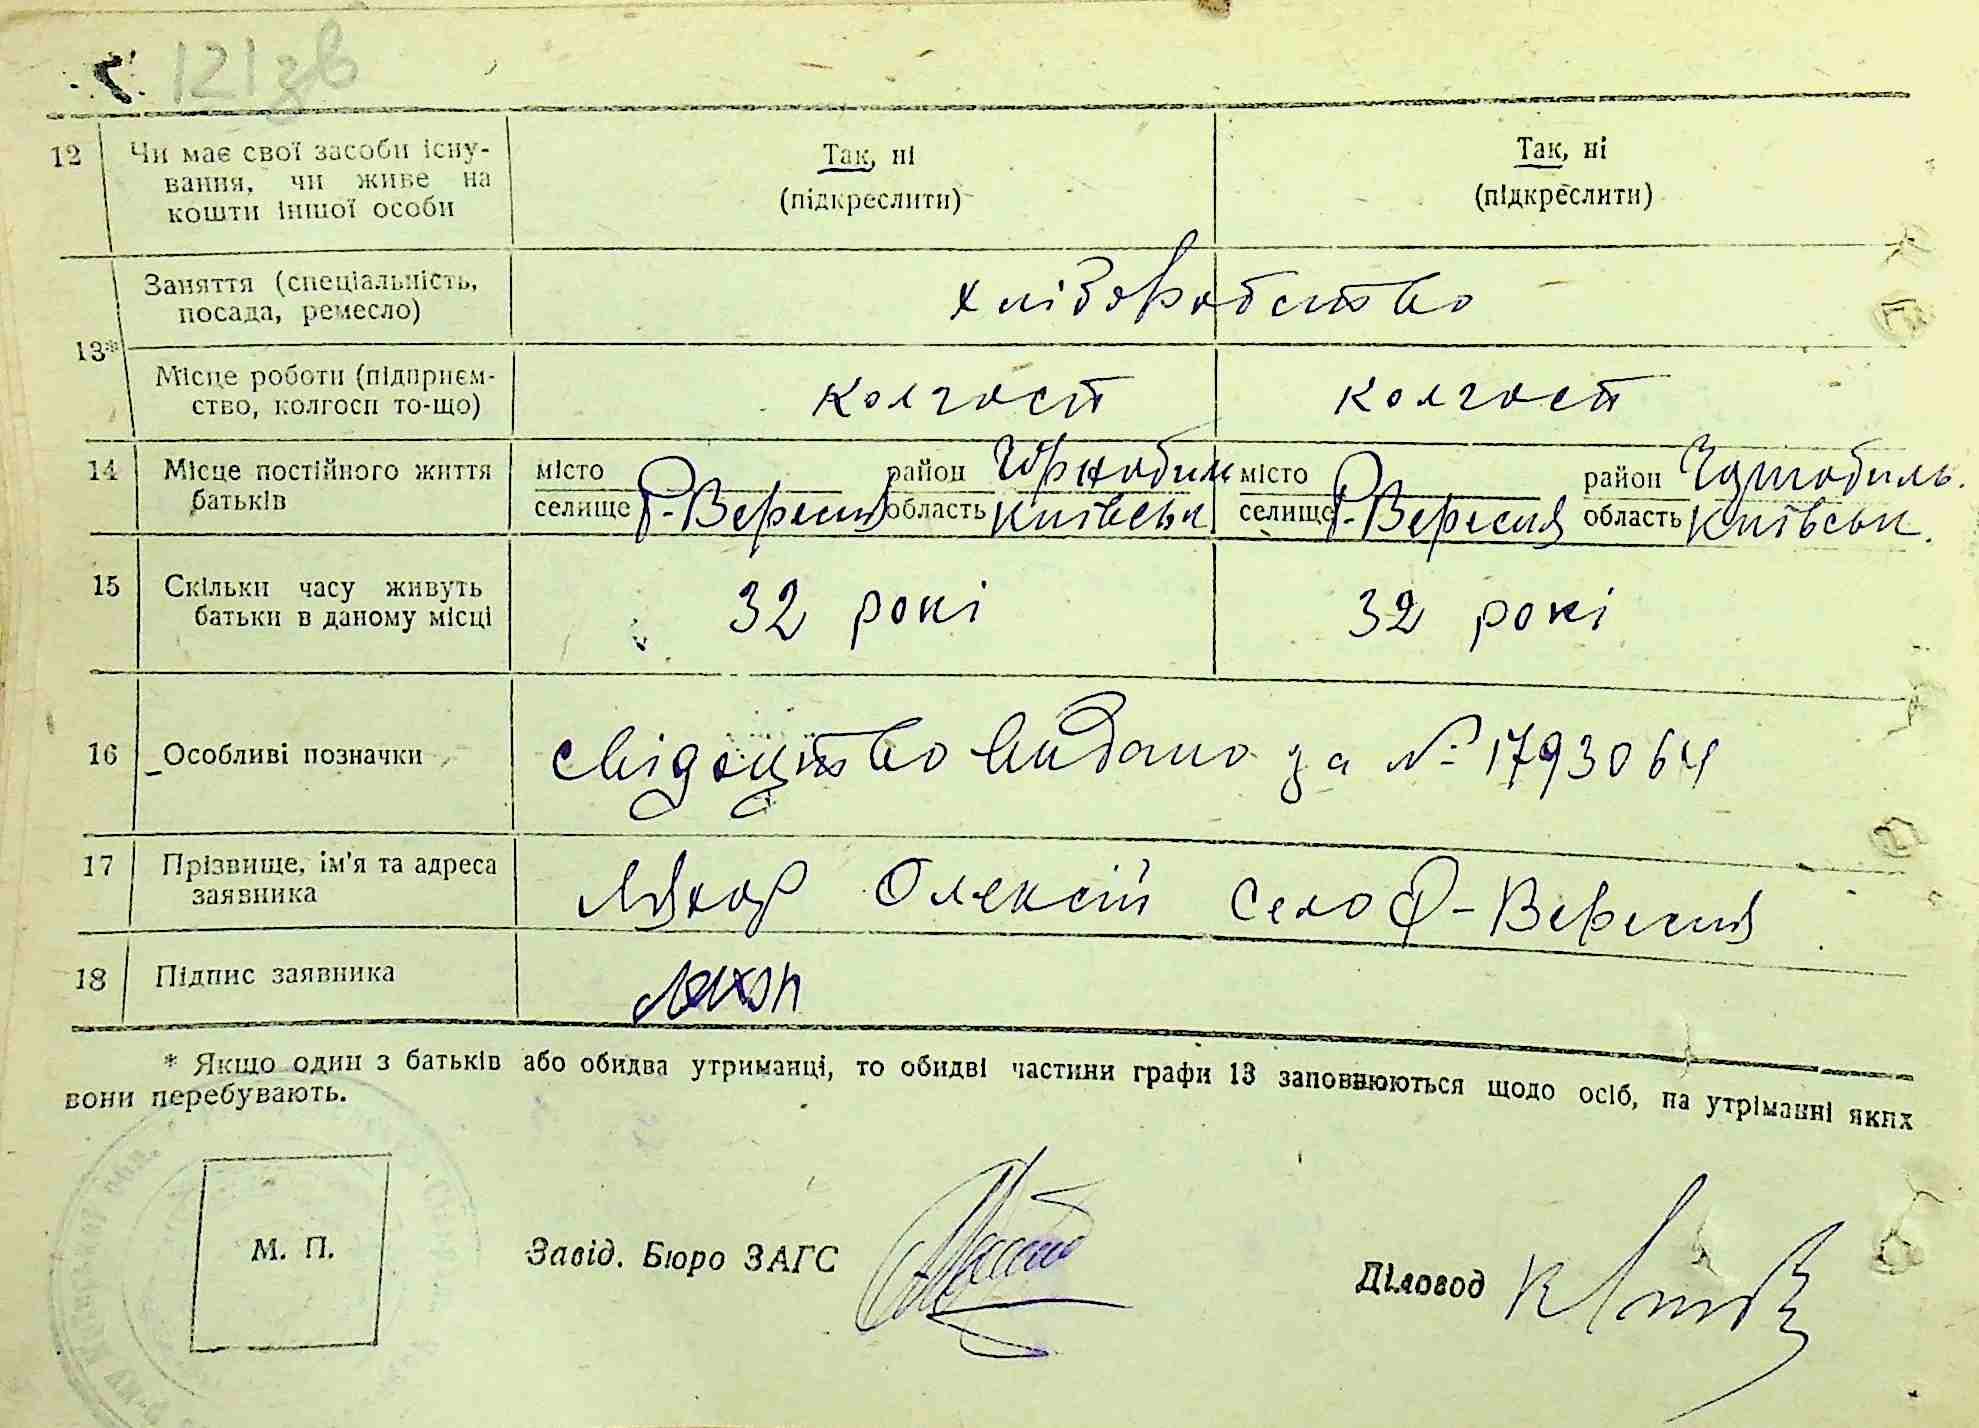 121зв
12 Чи має свої засоби існу-
вання, чи живе на
кошти іншої особи
Так, ні
(підкреслити)
Так, ні
(підкреслити)
13*
Заняття (спеціальність,
посада, ремесло)
хліборобство
Місце роботи (підприєм-
ство, колгосп то-що)
колгосп
колгосп
14 Місце постійного життя
батьків
місто
селище Р-Вересня
район Чорнобиль
область Київськ
місто
селище Р-Вересня
район Чорнобиль.
область Київськ.
15 Скільки часу живуть
батьки в даному місці
32 рокі
32 рокі
16 Особливі позначки
свідоцтво видано за № 1793064
17 Прізвище, ім'я та адреса
заявника
Олексій село Р-Вересня
18 Підпис заявника
* Якщо один з батьків або обидва утриманці, то обидві частини графи 13 заповнюються щодо осіб, на утріманні яких
вони перебувають.
М. П.
Завід. Бюро ЗАГС
Діловод